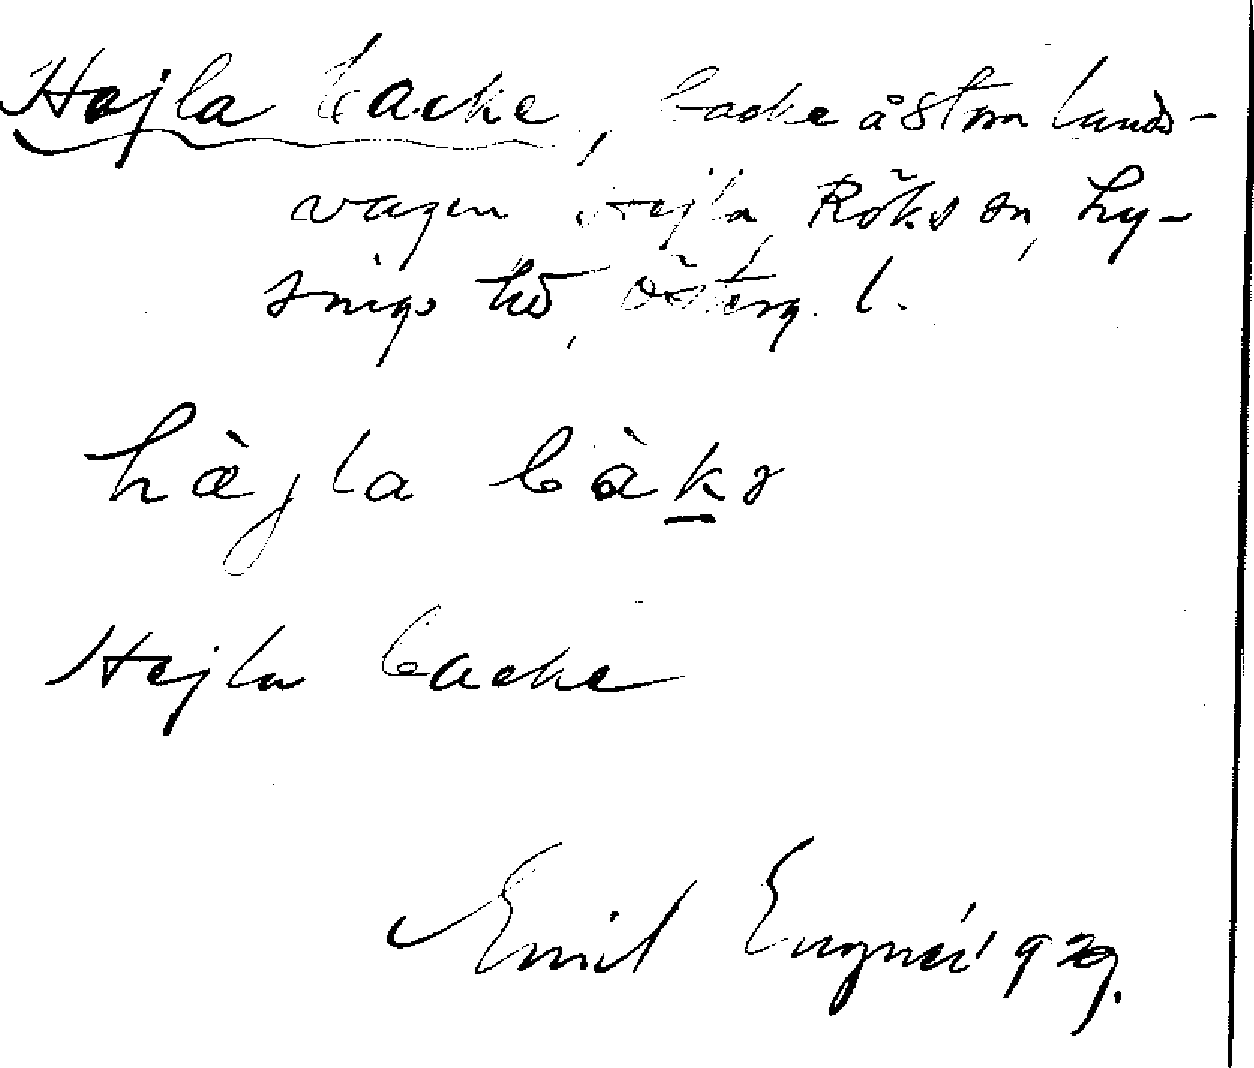 Hejla backe, backe å stora lands-
vägen Hejla, Röks sn, Ly-
sings hd, Österg. l.
hæ̀jla bàkə
Hejla backe
Emil Engnér 1929.